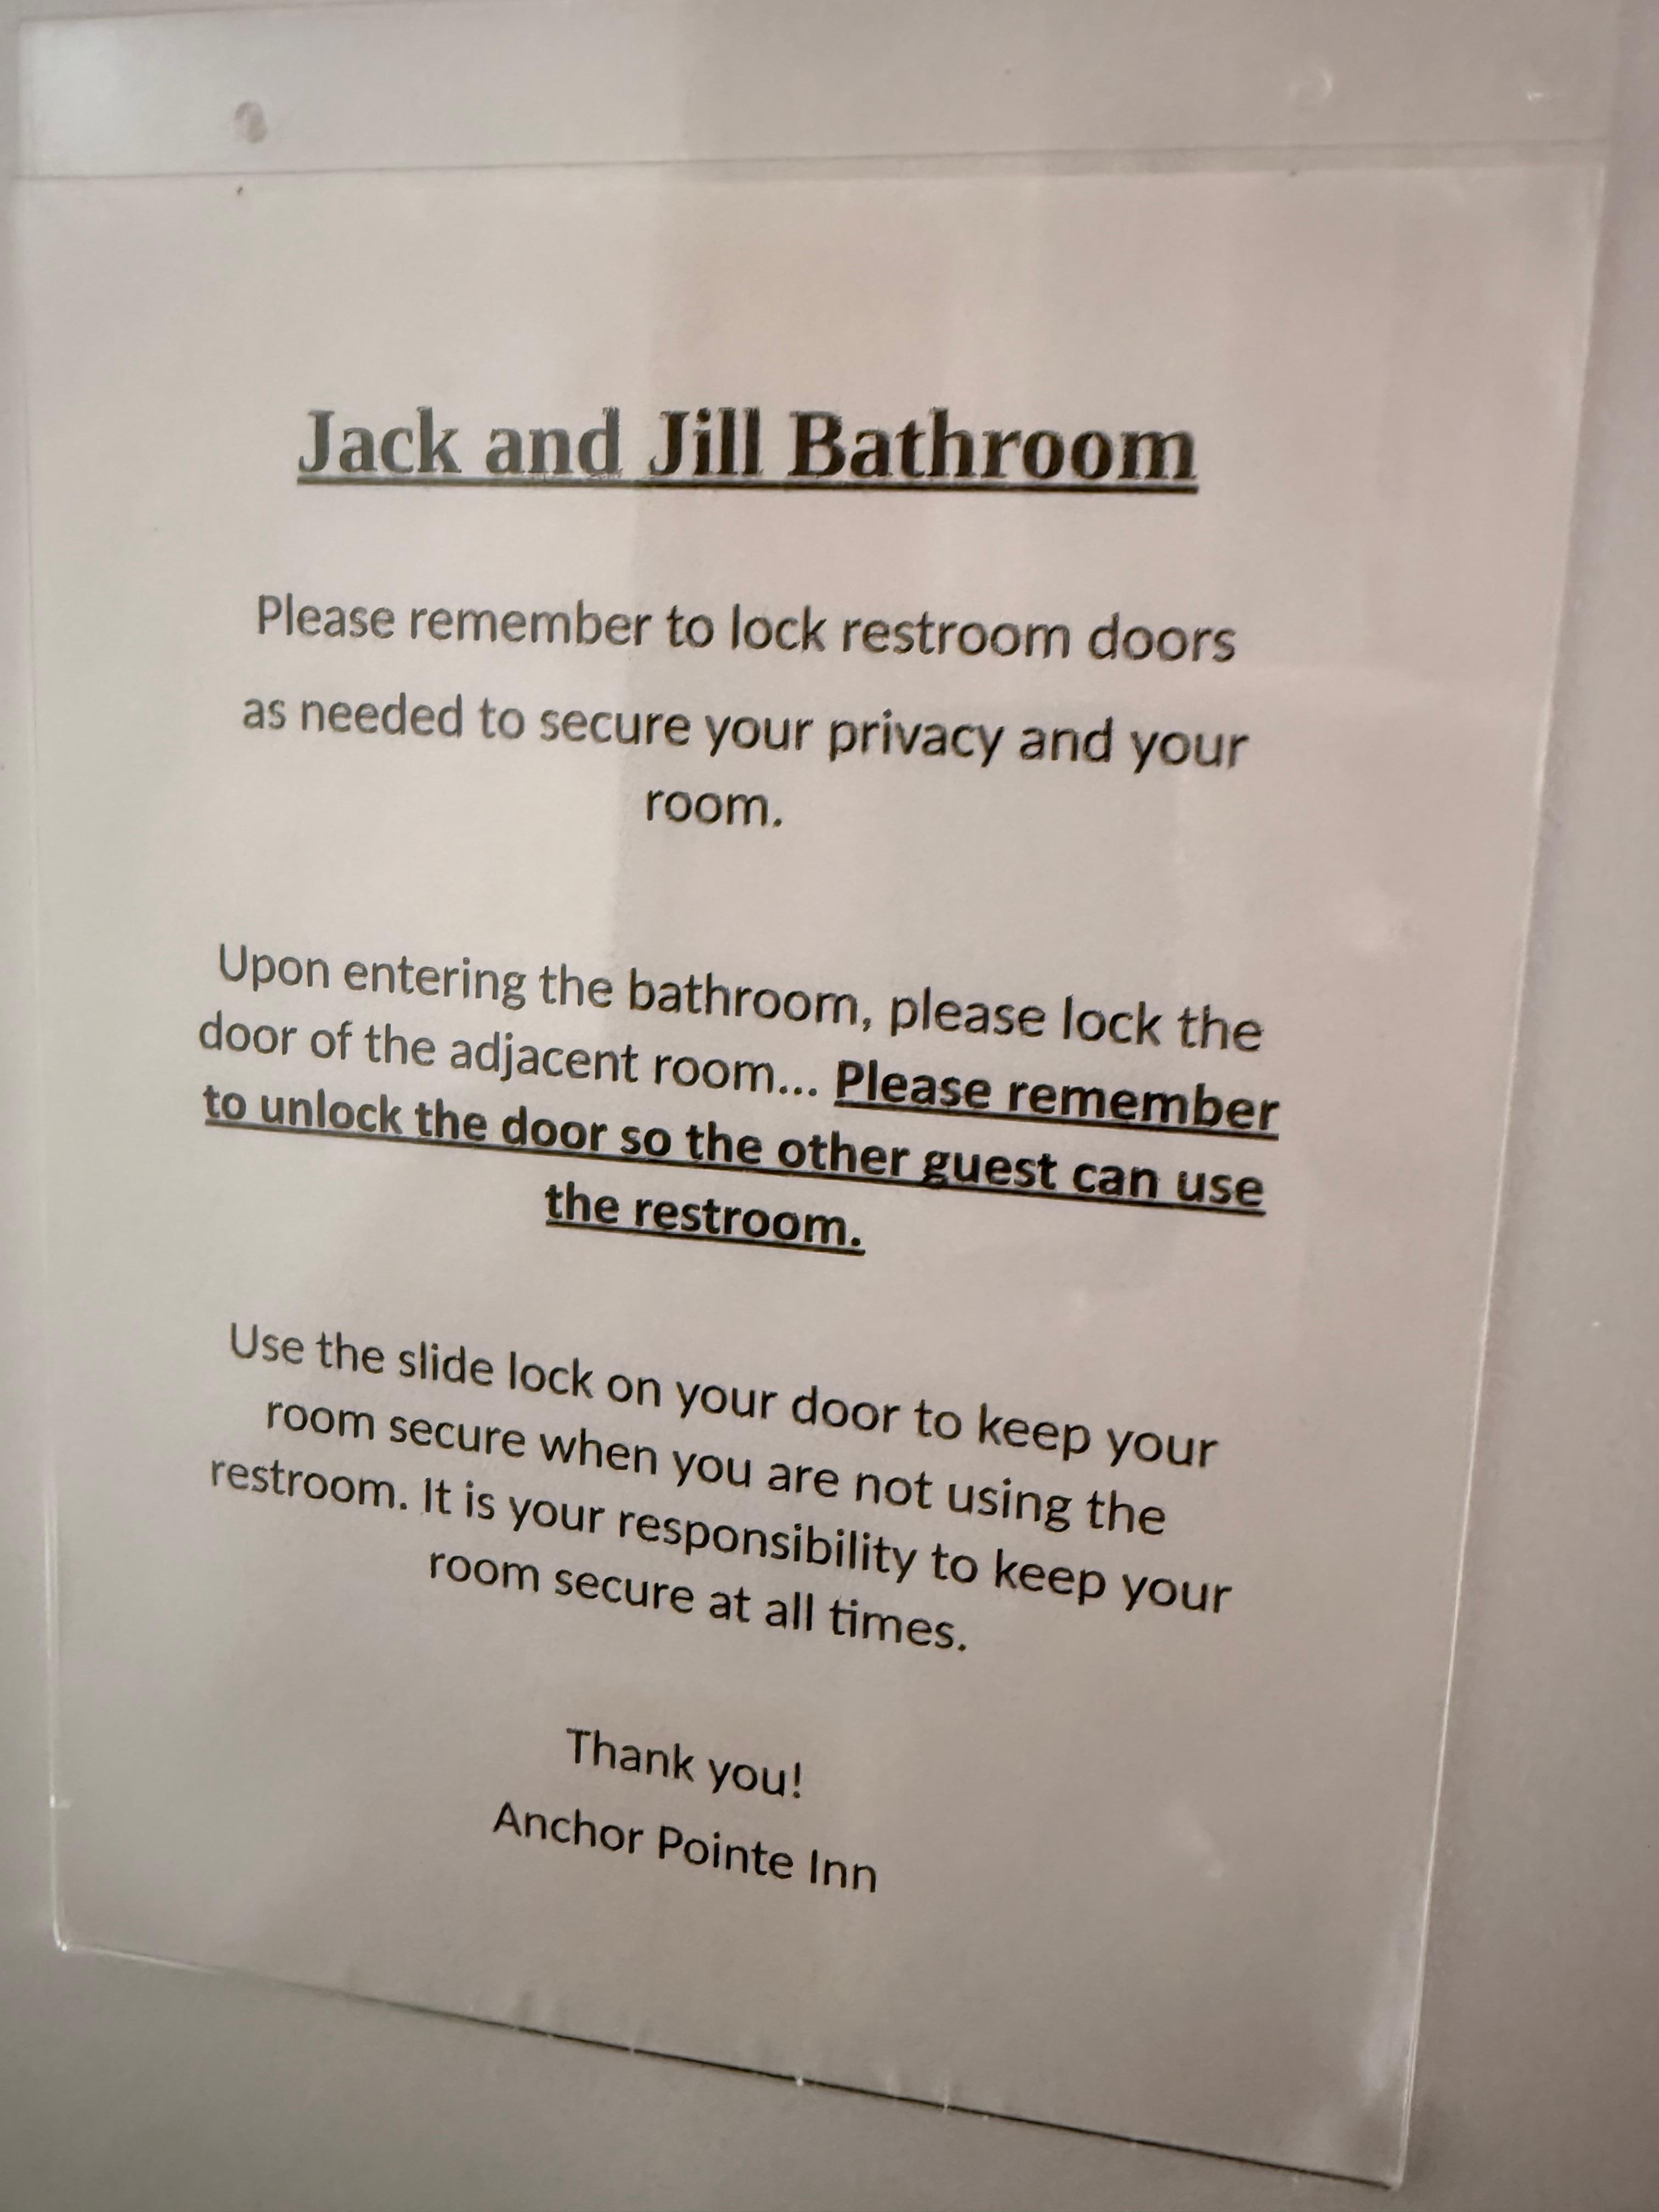 Jack and Jill Bathroom
Please remember to lock restroom doors
as needed to secure your privacy and your
room.
Upon entering the bathroom, please lock the
door of the adjacent room... Please remember
to unlock the door so the other guest can use
the restroom.
Use the slide lock on your door to keep your
room secure when you are not using the
restroom. It is your responsibility to keep your
room secure at all times.
Thank you!
Anchor Pointe Inn